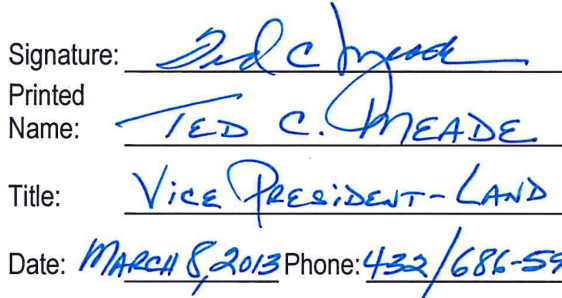 Signature: Ted C Meade
Printed
Name: TED C. MEADE
Title: VICE PRESIDENT-LAND
Date: MARCH 8, 2013 Phone: 432/686-59